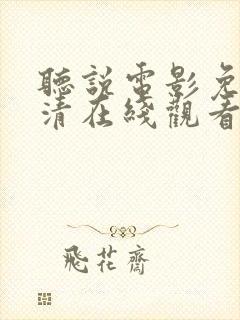 聽説電影免
清在綫觀看
飛花齋